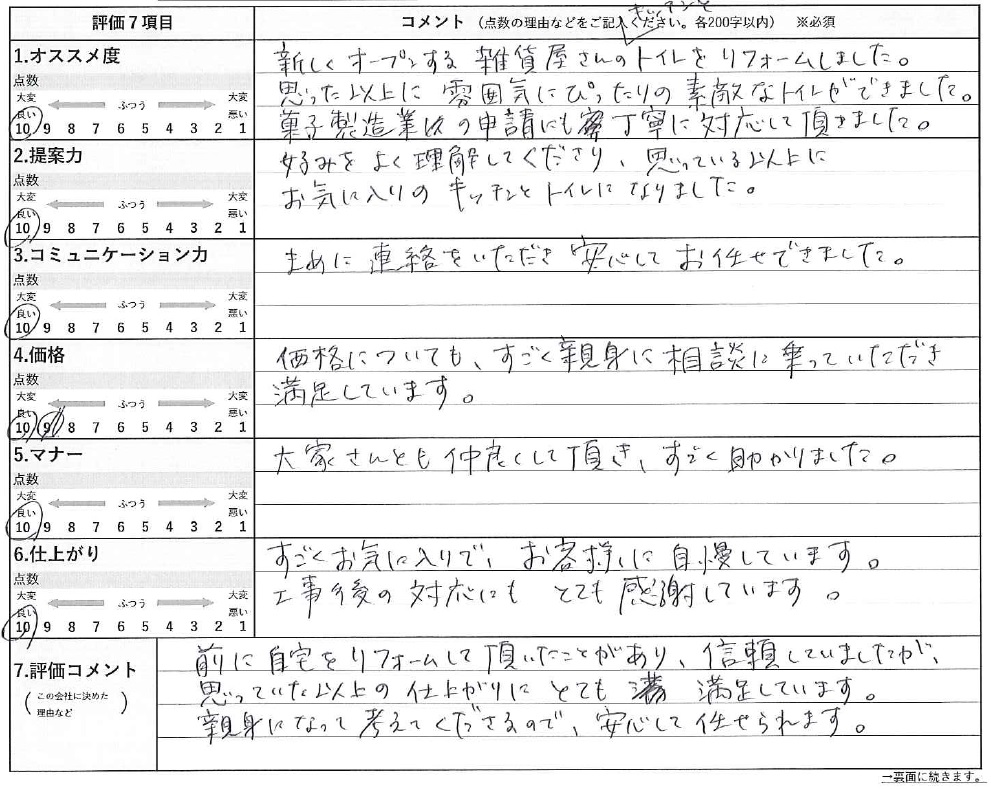 評価７項目
コメント（点数の理由などをご記入ください。各200字以内） ※必須
キッチンと
1.オススメ度
点数
大変 ふつう 大変
良い 悪い
10 9 8 7 6 5 4 3 2 1
新しくオープンする 雑貨屋さんのトイレをリフォームしました。
思った以上に 雰囲気にぴったりの 素敵なトイレができました。
菓子製造業の申請にも 丁寧に対応して頂きました。
2.提案力
点数
大変 ふつう 大変
良い 悪い
10 9 8 7 6 5 4 3 2 1
好みをよく理解してくださり、思っている以上に
お気に入りの キッチンとトイレになりました。
3.コミュニケーション力
点数
大変 ふつう 大変
良い 悪い
10 9 8 7 6 5 4 3 2 1
まめに 連絡をいただき 安心して お任せできました。
4.価格
点数
大変 ふつう 大変
良い 悪い
10 9 8 7 6 5 4 3 2 1
価格についても、すごく親身に相談に乗っていただき
満足しています。
5.マナー
点数
大変 ふつう 大変
良い 悪い
10 9 8 7 6 5 4 3 2 1
大家さんとも仲良くして頂き、すごく助かりました。
6.仕上がり
点数
大変 ふつう 大変
良い 悪い
10 9 8 7 6 5 4 3 2 1
すごくお気に入りで、お客様に自慢しています。
工事後の対応にも とても感謝しています。
7.評価コメント
（この会社に決めた
理由など）
前に自宅をリフォームして頂いたことがあり、信頼していましたが、
思っていた以上の仕上がりに とても 満足しています。
親身になって考えてくださるので、安心して任せられます。
→裏面に続きます。